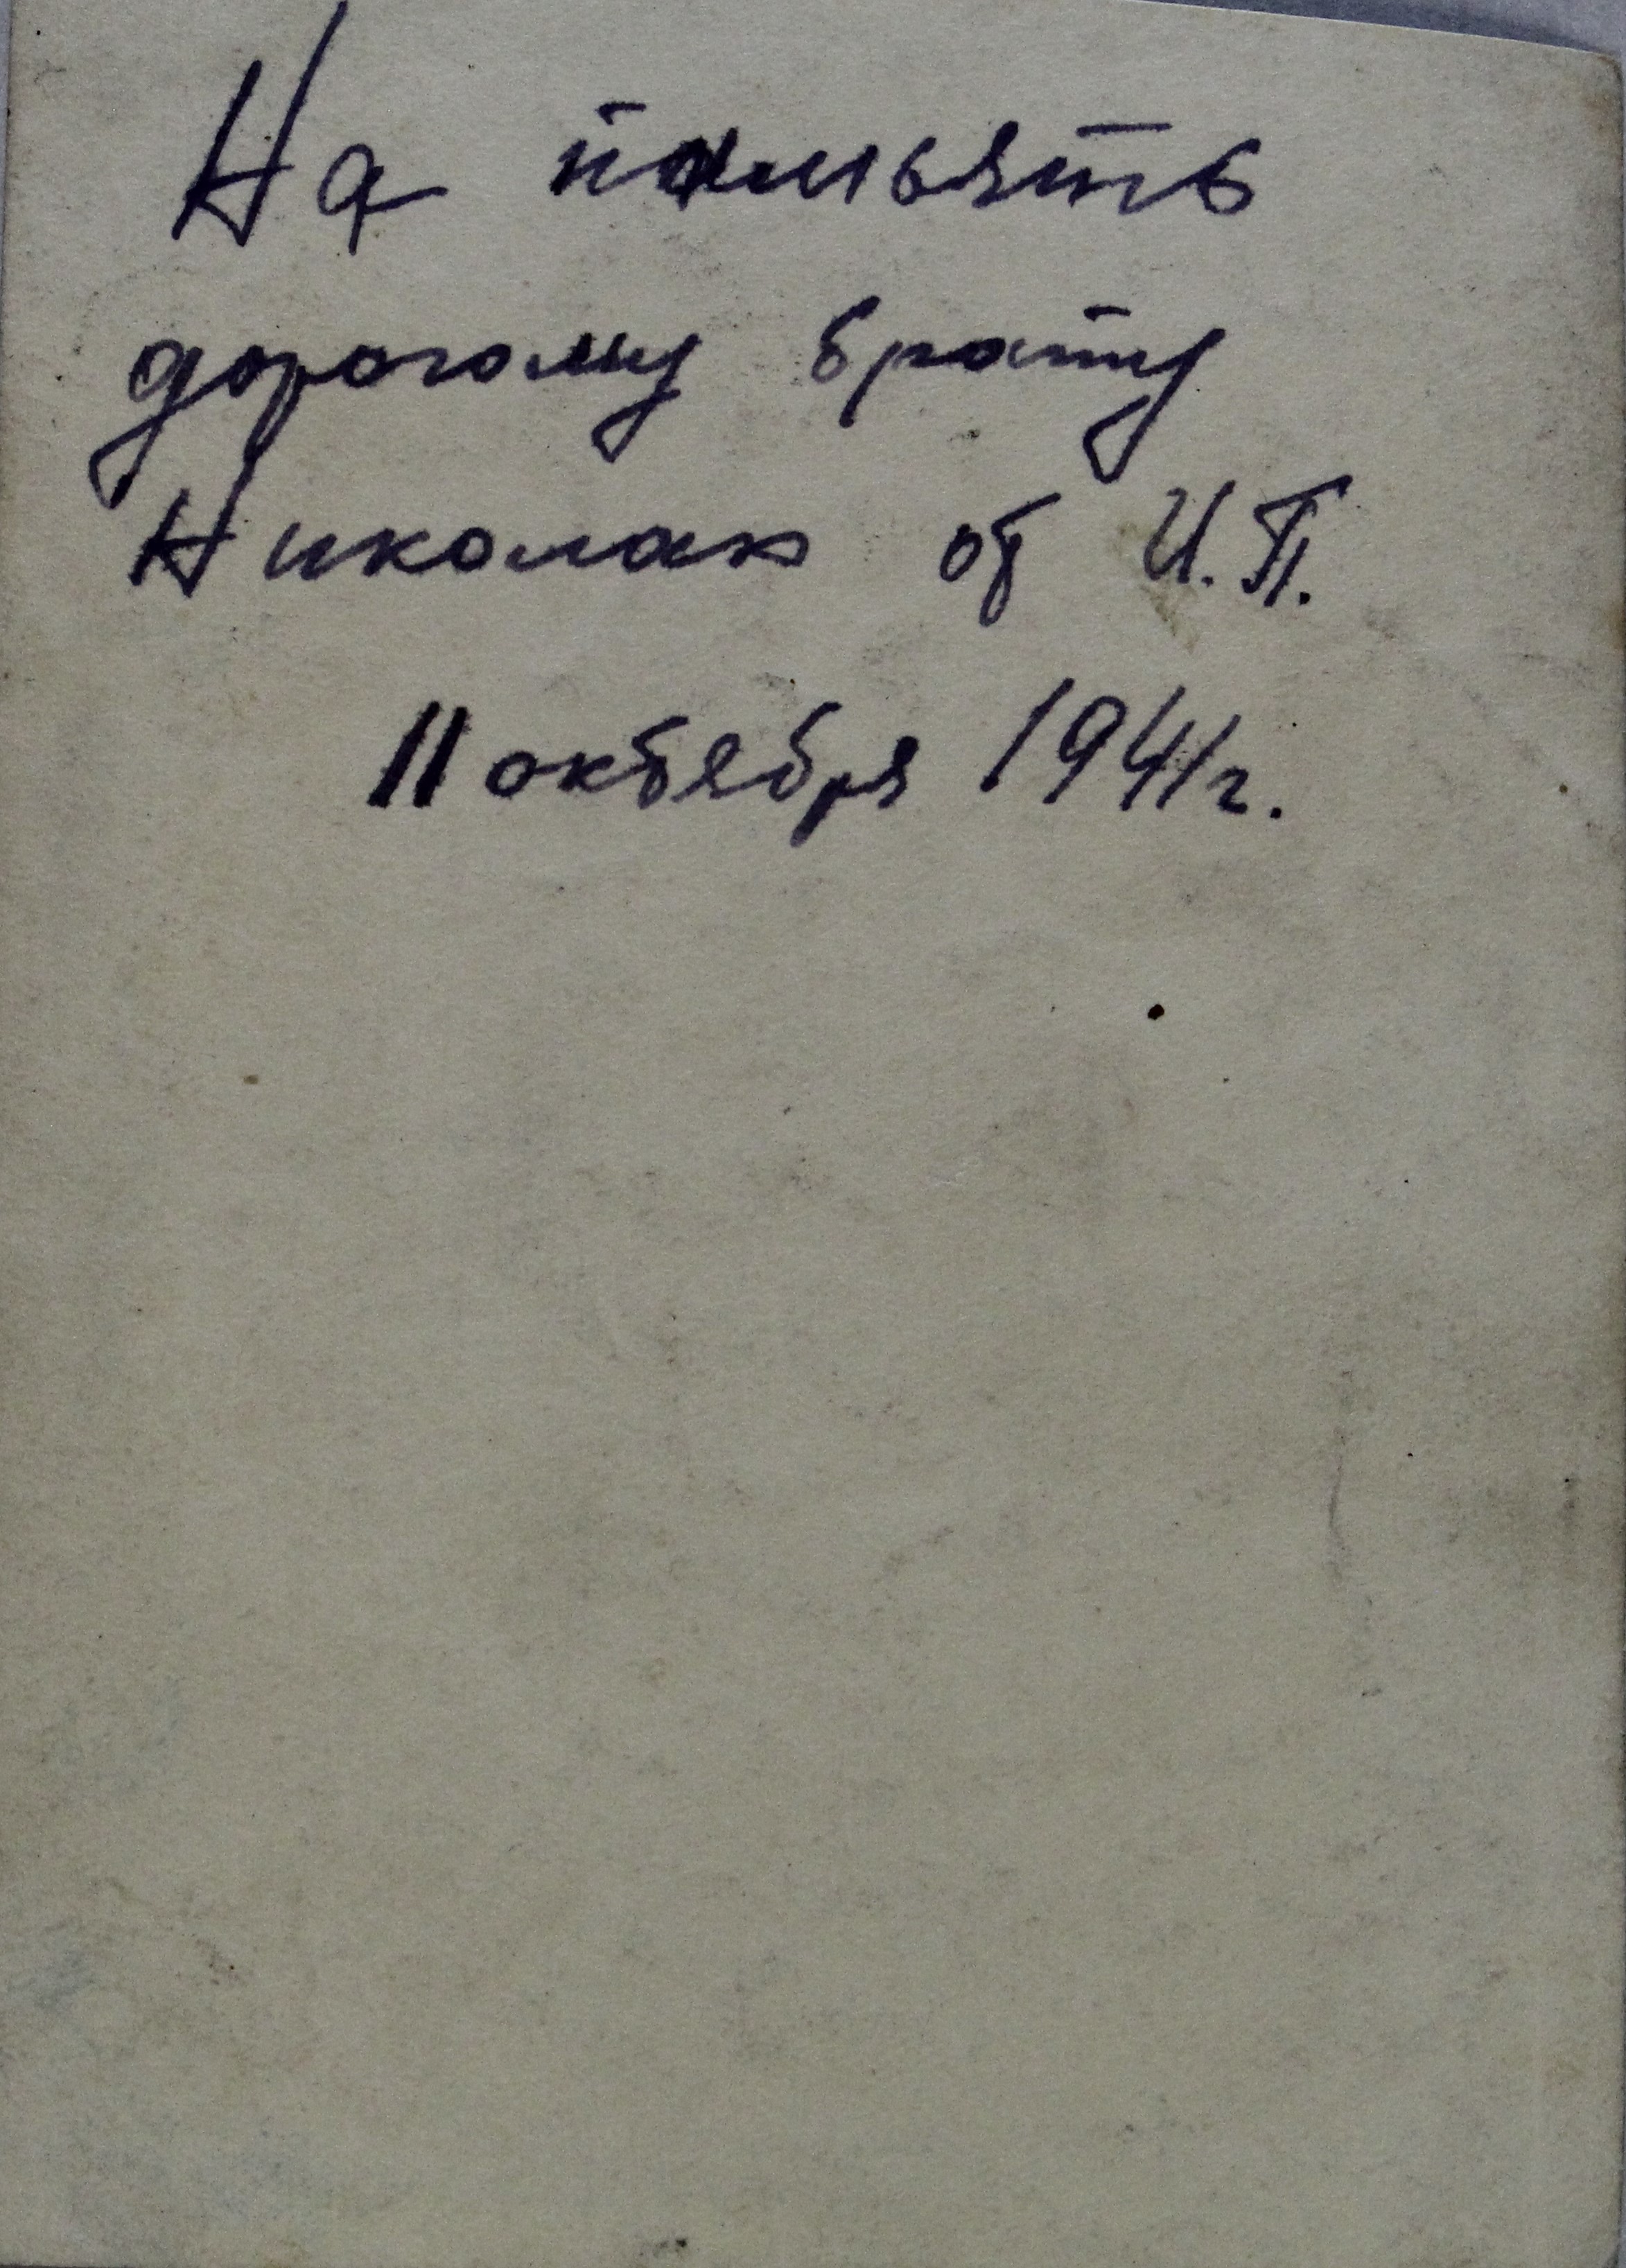 На памьять
дорогому брату
Николаю от И.П.
11 октября 1941г.